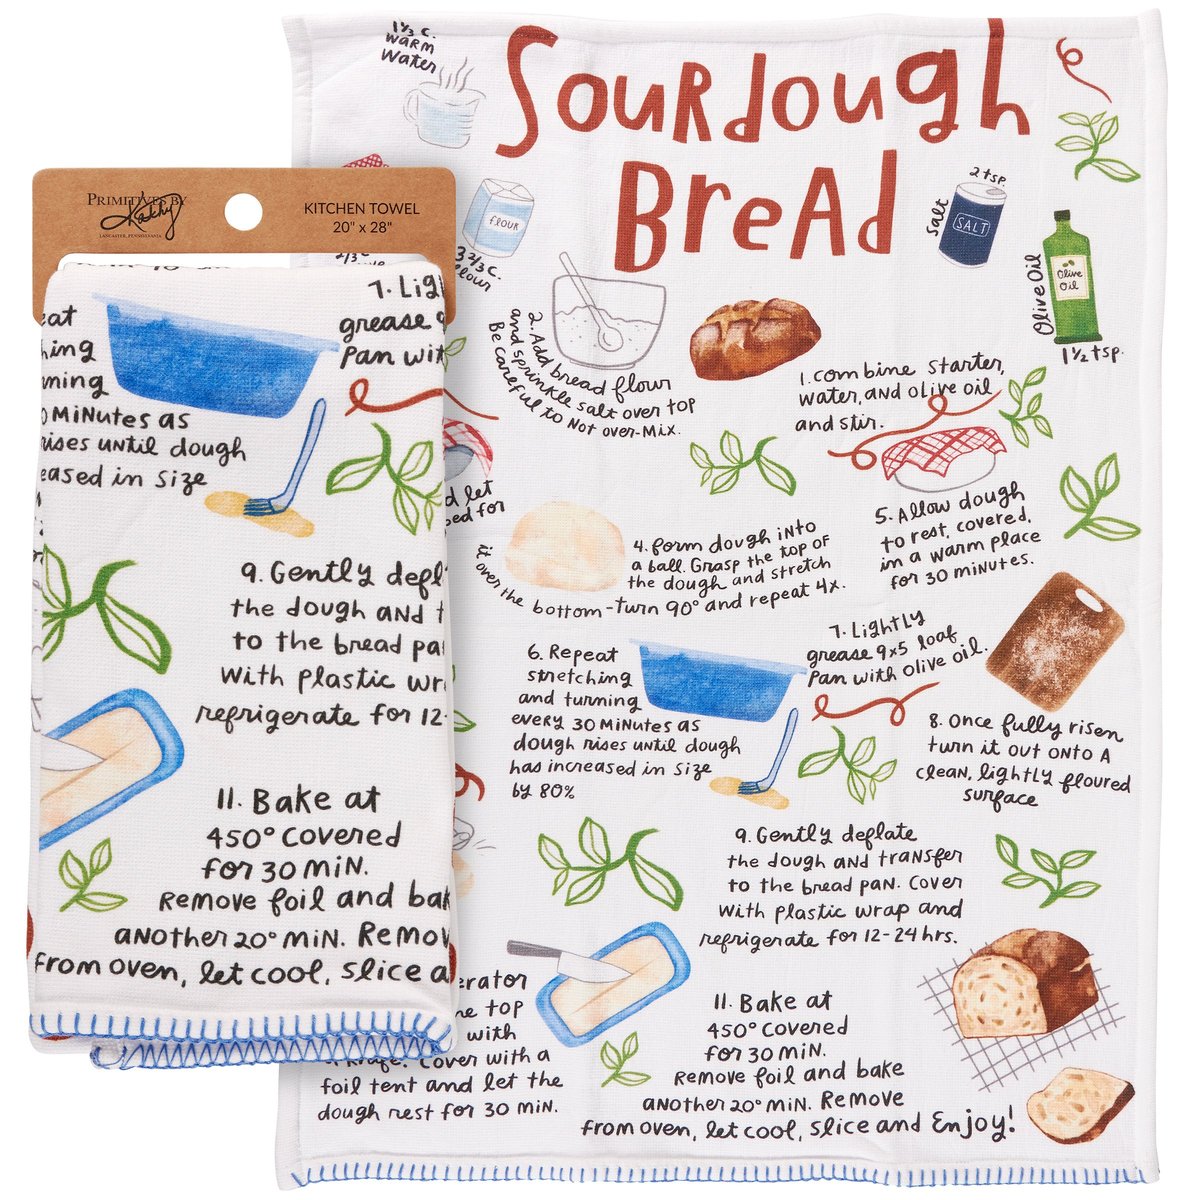 Sourdough
Bread
1⅓ c.
warm
water
flour
3 2/3 c.
flour
2 tsp.
Salt
SALT
Olive Oil
Olive
Oil
1½ tsp.
1. combine starter,
water, and olive oil
and stir.
2. Add bread flour
and sprinkle salt over top
Be careful to Not over-Mix.
d let
ed for
4. form dough into
a ball. Grasp the top of
the dough and stretch
it over the bottom - turn 90° and repeat 4x.
5. Allow dough
to rest, covered,
in a warm place
for 30 minutes.
6. Repeat
stretching
and turning
every 30 minutes as
dough rises until dough
has increased in size
by 80%
7. Lightly
grease 9x5 loaf
pan with olive oil.
8. Once fully risen
turn it out onto a
clean, lightly floured
surface
9. Gently deflate
the dough and transfer
to the bread pan. Cover
with plastic wrap and
refrigerate for 12-24 hrs.
erator
he top
with
a knife. Cover with a
foil tent and let the
dough rest for 30 min.
11. Bake at
450° covered
for 30 min.
Remove foil and bake
another 20° min. Remove
from oven, let cool, slice and Enjoy!
PRIMITIVES BY
Kathy
LANCASTER, PENNSYLVANIA
KITCHEN TOWEL
20" x 28"
eat
hing
rning
0 minutes as
rises until dough
eased in size
7. Lig
grease 9
pan wit
9. Gently defl
the dough and t
to the bread pa
with plastic wr
refrigerate for 12-
11. Bake at
450° covered
for 30 min.
Remove foil and bak
another 20° min. Remov
from oven, let cool, slice a